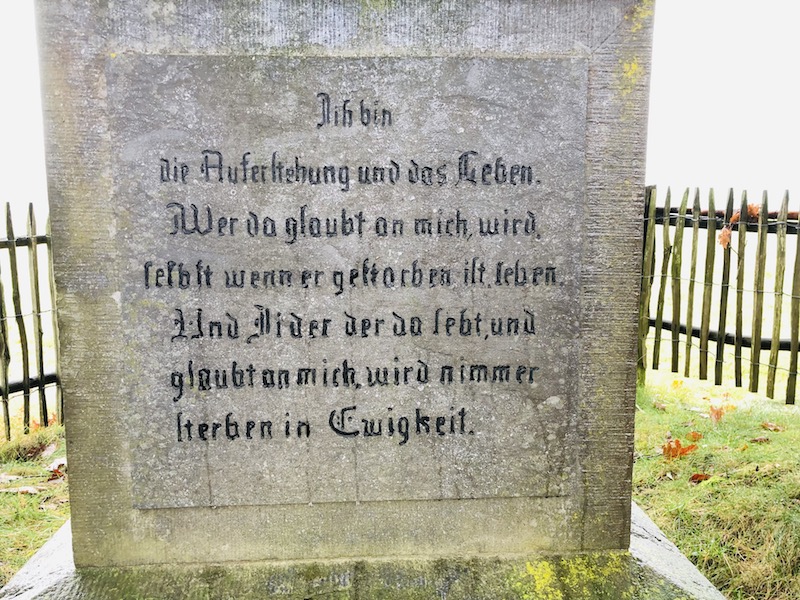 Ich bin
die Auferstehung und das Leben.
Wer da glaubt an mich, wird,
selbst wenn er gestorben ist, leben.
Und Jider der da lebt, und
glaubt an mich, wird nimmer
sterben in Ewigkeit.